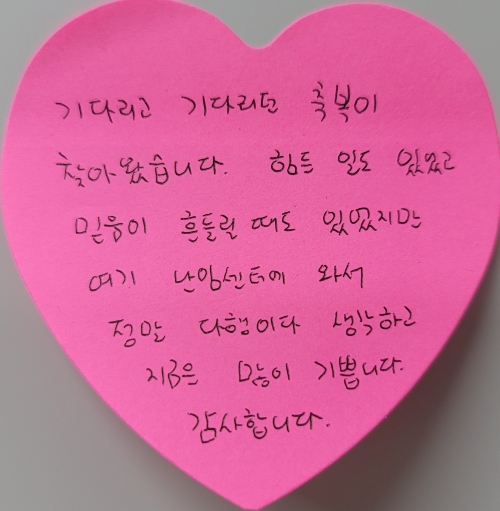 기다리고 기다리던 축복이
찾아왔습니다. 힘든 일도 있었고
믿음이 흔들릴 때도 있었지만
여기 난임센터에 와서
정말 다행이다 생각하고
지금은 많이 기쁩니다.
감사합니다.